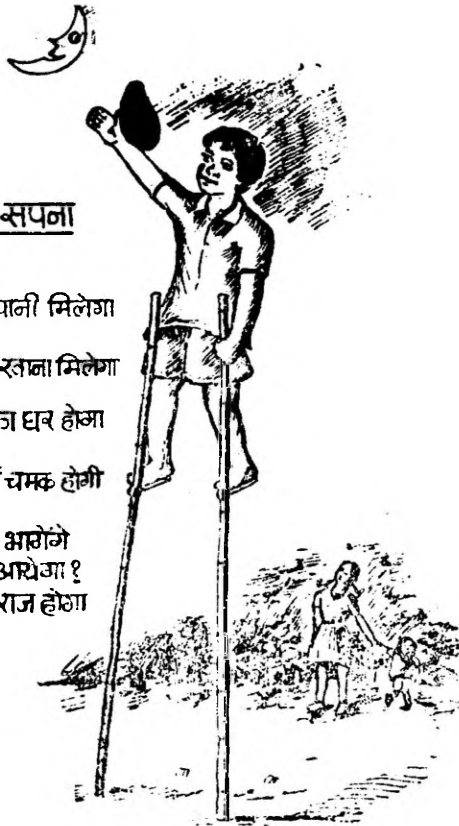 सपना
पानी मिलेगा
खाना मिलेगा
का घर होगा
चमक होगी
भागेंगे
आयेगा ?
राज होगा